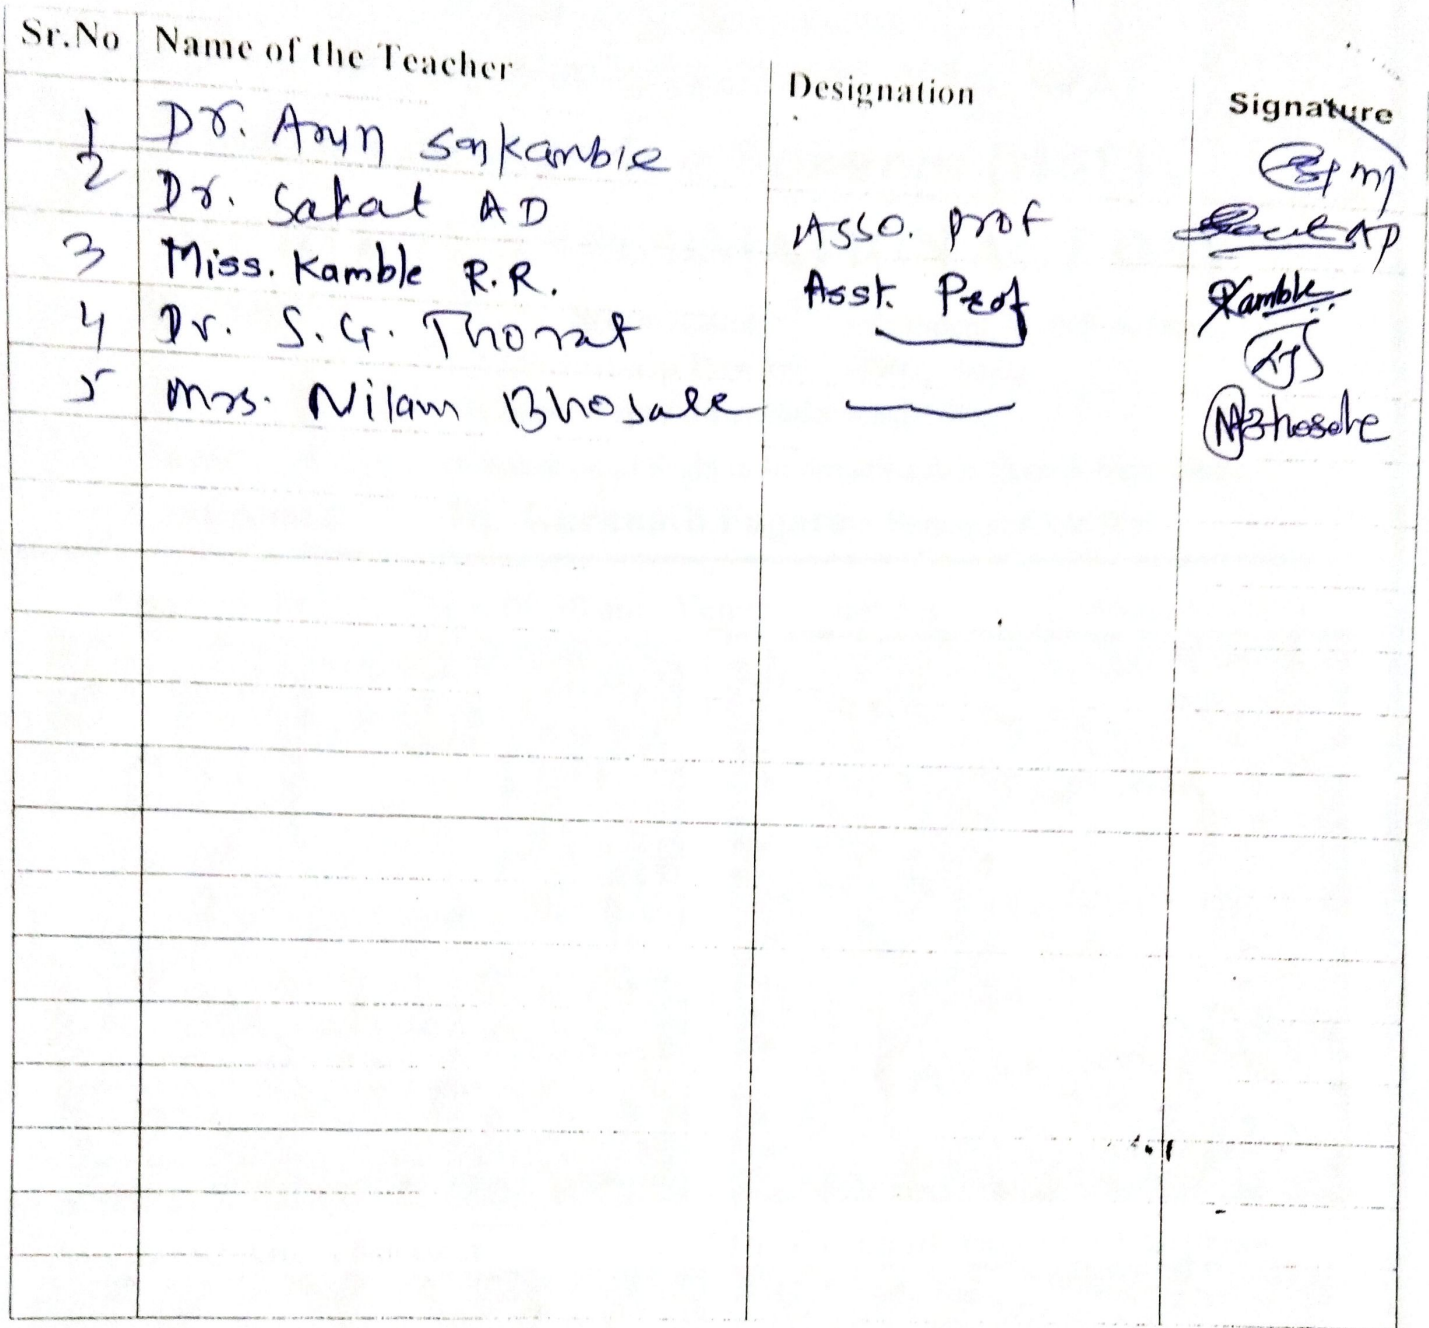 Sr.No Name of the Teacher Designation Signature
1 Dr. Arun Sonkamble
2 Dr. Sakat AD Asso. Prof
3 Miss. Kamble R.R. Asst. Prof Kamble
4 Dr. S.G. Thorat
5 Mrs. Nilam Bhosale NBhosale